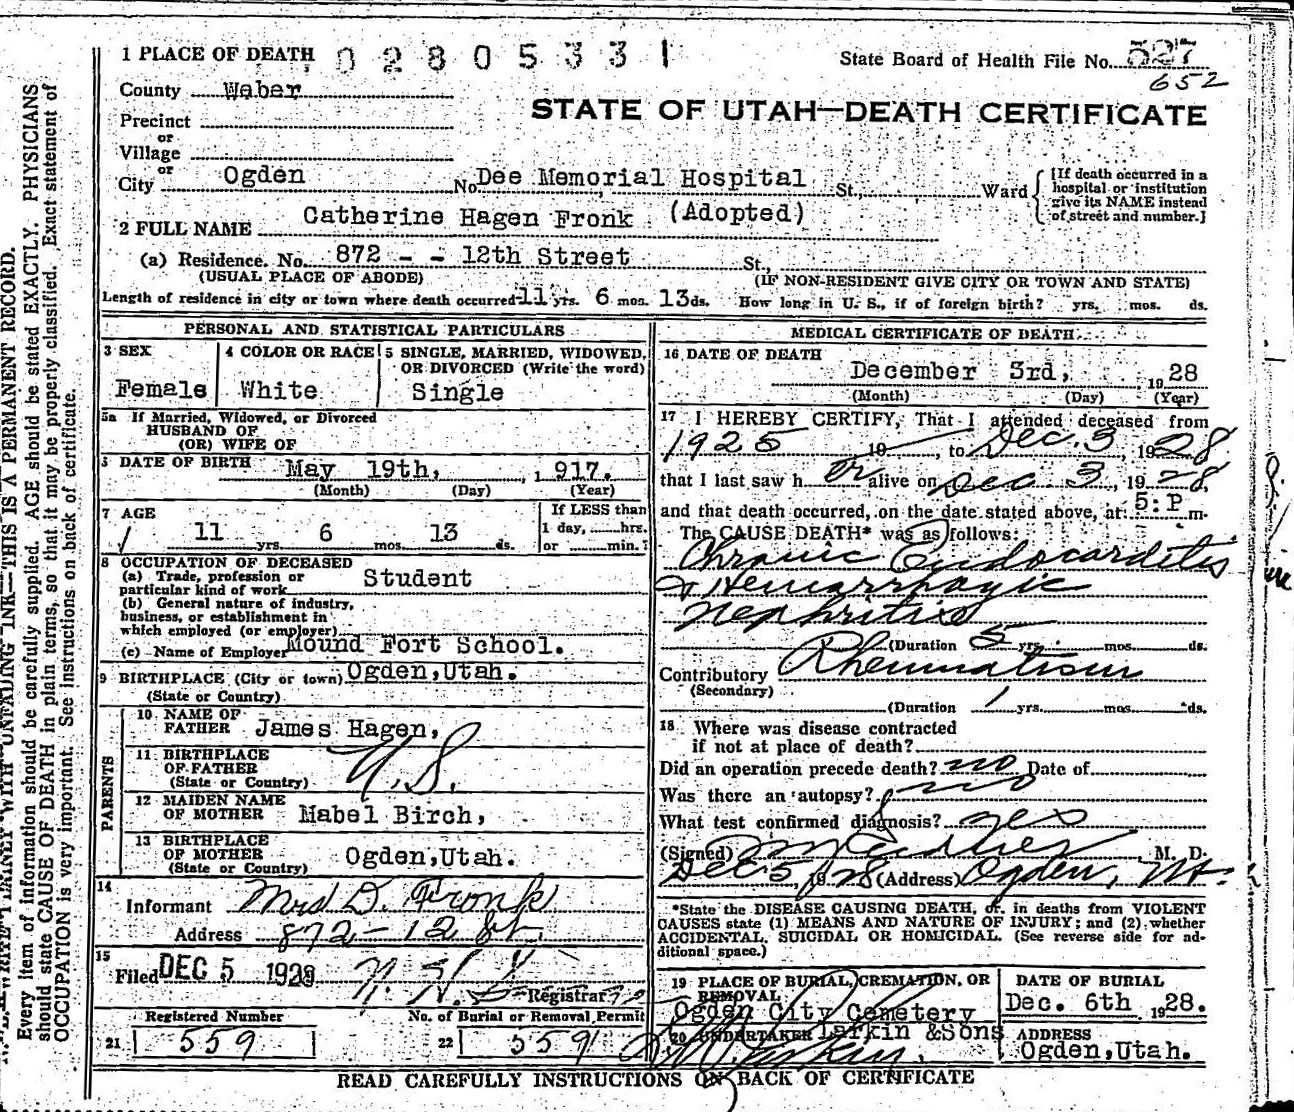 1 PLACE OF DEATH 02805331
State Board of Health File No. 527
652
County Weber
STATE OF UTAH—DEATH CERTIFICATE
Precinct
or
Village
or
City Ogden No Dee Memorial Hospital St., Ward
[If death occurred in a
hospital or institution
give its NAME instead
of street and number.]
2 FULL NAME Catherine Hagen Fronk (Adopted)
(a) Residence. No. 872 - - 12th Street St.,
(USUAL PLACE OF ABODE) (IF NON-RESIDENT GIVE CITY OR TOWN AND STATE)
Length of residence in city or town where death occurred 11 yrs. 6 mos. 13 ds. How long in U. S., if of foreign birth? yrs. mos. ds.
PERSONAL AND STATISTICAL PARTICULARS
3 SEX
Female
4 COLOR OR RACE
White
5 SINGLE, MARRIED, WIDOWED,
OR DIVORCED (Write the word)
Single
5a If Married, Widowed, or Divorced
HUSBAND OF
(OR) WIFE OF
DATE OF BIRTH May 19th, 1 917.
(Month) (Day) (Year)
7 AGE
11 yrs. 6 mos. 13 ds.
If LESS than
1 day, hrs.
or min.?
8 OCCUPATION OF DECEASED
(a) Trade, profession or
particular kind of work Student
(b) General nature of industry,
business, or establishment in
which employed (or employer)
(c) Name of Employer Mound Fort School.
9 BIRTHPLACE (City or town) Ogden,Utah.
(State or Country)
PARENTS
10 NAME OF
FATHER James Hagen,
11 BIRTHPLACE
OF FATHER
(State or Country) U.S.
12 MAIDEN NAME
OF MOTHER Mabel Birch,
13 BIRTHPLACE
OF MOTHER
(State or Country) Ogden,Utah.
14
Informant Mrs D. Fronk
Address 872 - 12 St.
15
Filed DEC 5 1928
Registrar
Registered Number
21 559
No. of Burial or Removal Permit
22 559
MEDICAL CERTIFICATE OF DEATH
16 DATE OF DEATH
December 3rd, 19 28
(Month) (Day) (Year)
17 I HEREBY CERTIFY, That I attended deceased from
1925 19 , to Dec. 3, 1928
that I last saw h er alive on Dec. 3, 1928,
and that death occurred, on the date stated above, at 5: P m.
The CAUSE DEATH* was as follows:
Chronic Endocarditis
& Hemorrhagic
Nephritis
(Duration 5 yrs. mos. ds.
Contributory Rheumatism
(Secondary)
(Duration 1 yrs. mos. ds.
18 Where was disease contracted
if not at place of death?
Did an operation precede death? no Date of
Was there an autopsy? no
What test confirmed diagnosis? yes
(Signed) M. D.
Dec 5, 1928 (Address) Ogden, Ut.
*State the DISEASE CAUSING DEATH, or in deaths from VIOLENT
CAUSES state (1) MEANS AND NATURE OF INJURY; and (2) whether
ACCIDENTAL, SUICIDAL OR HOMICIDAL. (See reverse side for ad-
ditional space.)
19 PLACE OF BURIAL, CREMATION, OR
REMOVAL
Ogden City Cemetery
DATE OF BURIAL
Dec. 6th 1928.
20 UNDERTAKER Larkin &Sons
ADDRESS
Ogden,Utah.
READ CAREFULLY INSTRUCTIONS ON BACK OF CERTIFICATE
WRITE PLAINLY WITH UNFADING INK—THIS IS A PERMANENT RECORD.
Every item of information should be carefully supplied. AGE should be stated EXACTLY. PHYSICIANS
should state CAUSE OF DEATH in plain terms, so that it may be properly classified. Exact statement of
OCCUPATION is very important. See instructions on back of certificate.